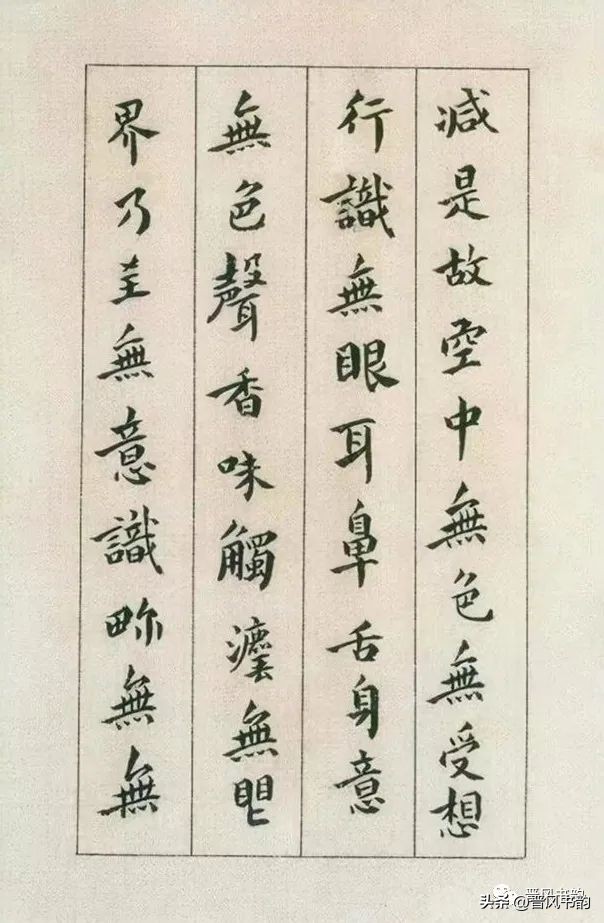 減是故空中無色無受想
行識無眼耳鼻舌身意
無色聲香味觸灋無眼
界乃至無意識畍無無
晋风书韵
头条 @晋风书韵